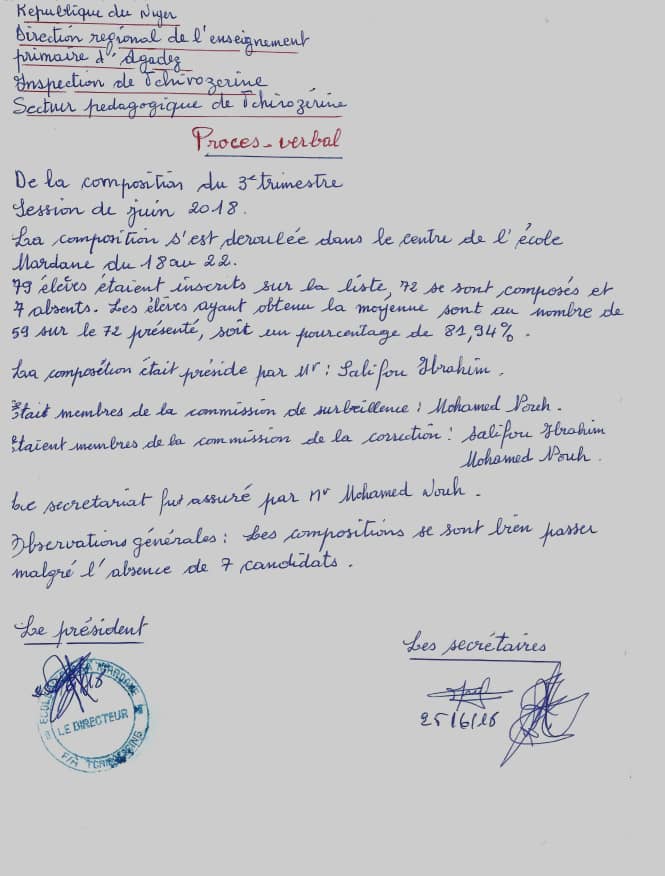 Republique du Niger
Direction regional de l'enseignement
primaire d'Agadez
Inspection de Tchirozerine
Secteur pedagogique de Tchirozérine
Proces-verbal
De la composition du 3e trimestre
Session de juin 2018.
La composition s'est deroulée dans le centre de l'école
Mardane du 18 au 22.
79 élèves étaient inscrits sur la liste, 72 se sont composés et
7 absents. Les élèves ayant obtenu la moyenne sont au nombre de
59 sur le 72 présenté, soit un pourcentage de 81,94%.
La composition était préside par Mr : Salifou Ibrahim.
Etait membres de la commission de surveillence : Mohamed Nouh.
Etaient membres de la commission de la correction : Salifou Ibrahim
Mohamed Nouh.
Le secretariat fut assuré par Mr Mohamed Nouh.
Observations générales : Les compositions se sont bien passer
malgré l'absence de 7 candidats.
Le président
Les secrétaires
ECOLE MARDANE
LE DIRECTEUR
25/6/18